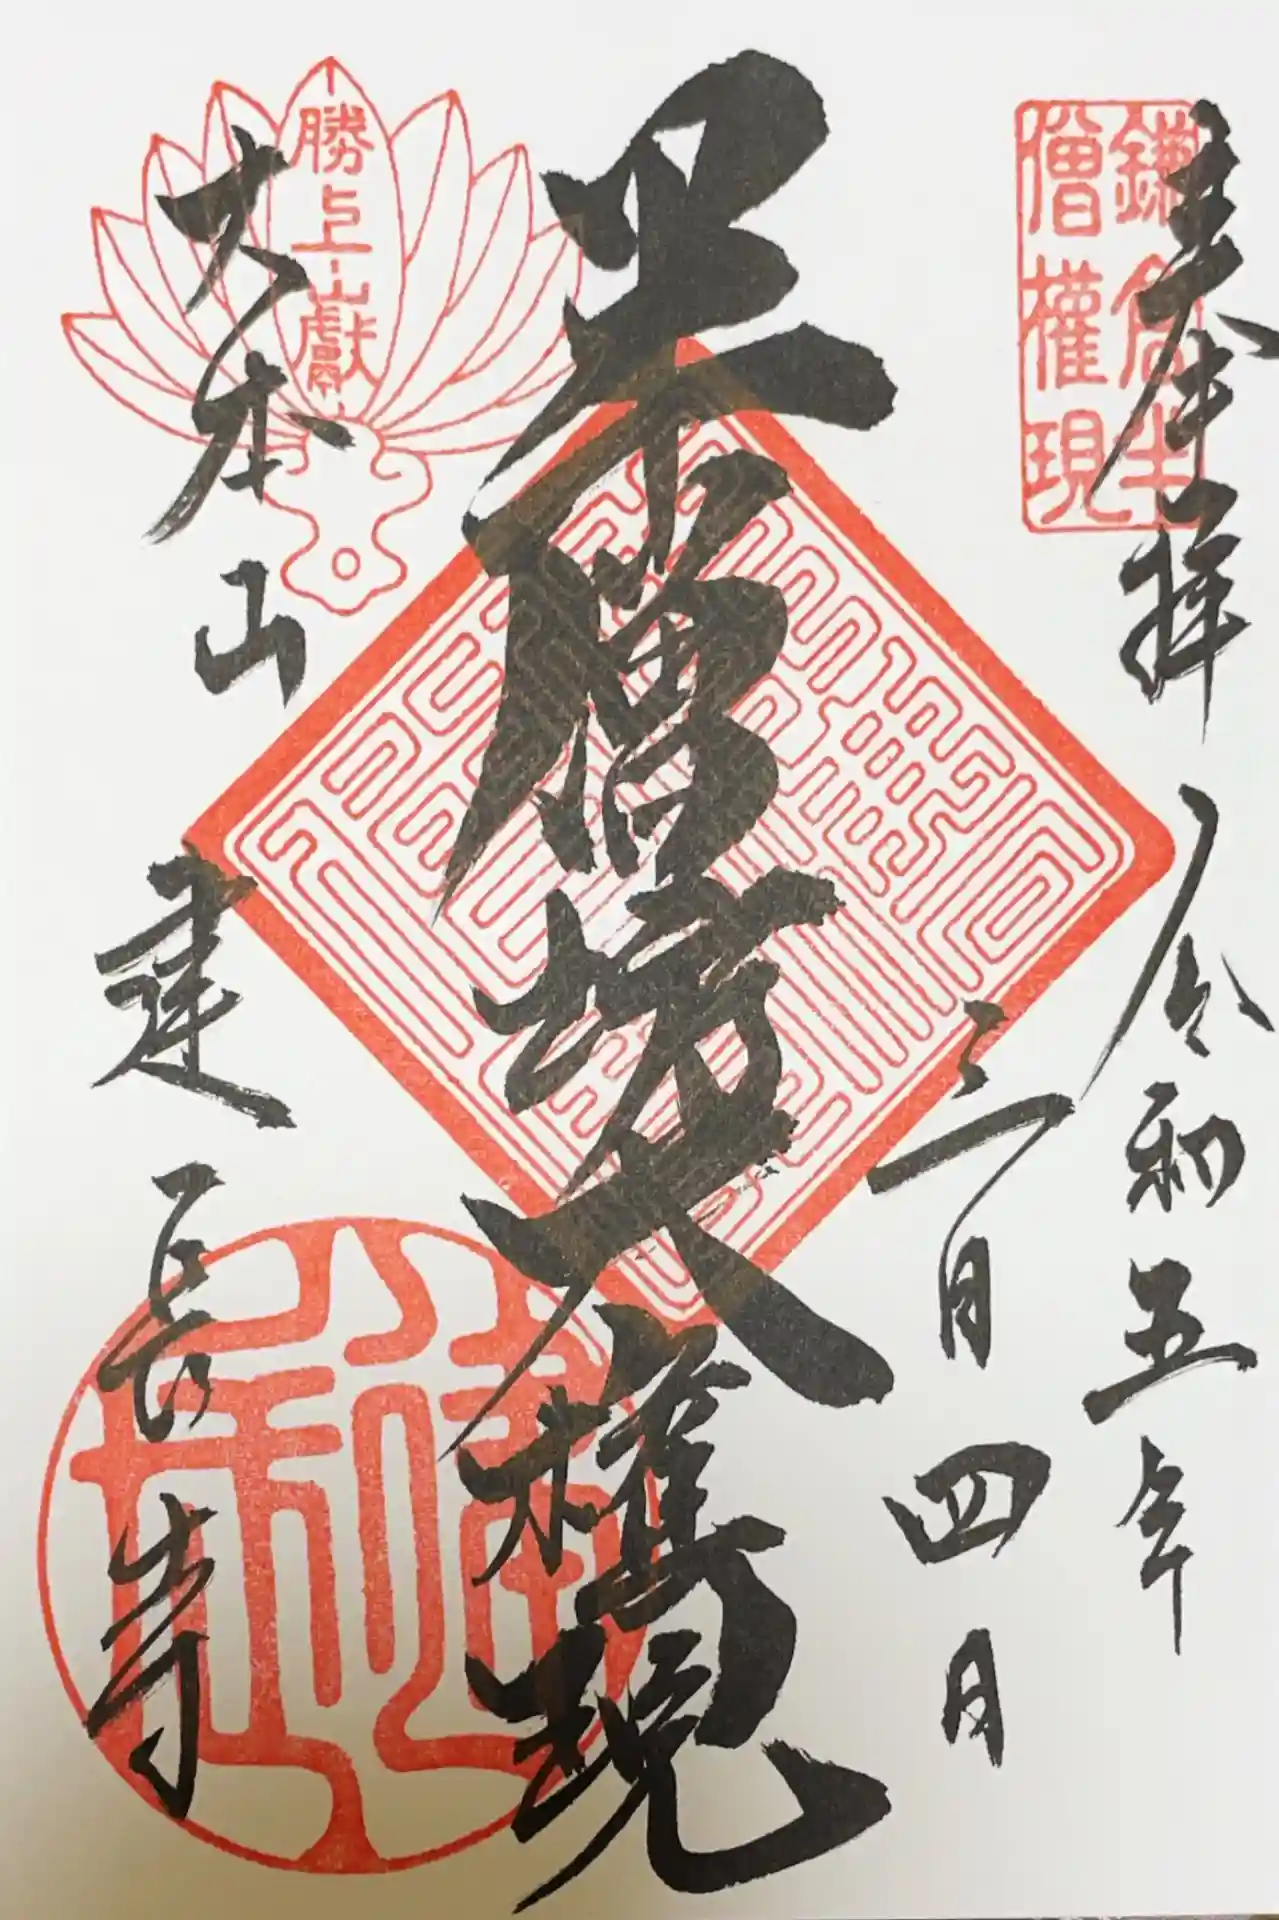 鎌倉半
僧權現
奉拝 令和五年
三月四日
半僧坊大権現
勝上巘
大本山 建長寺